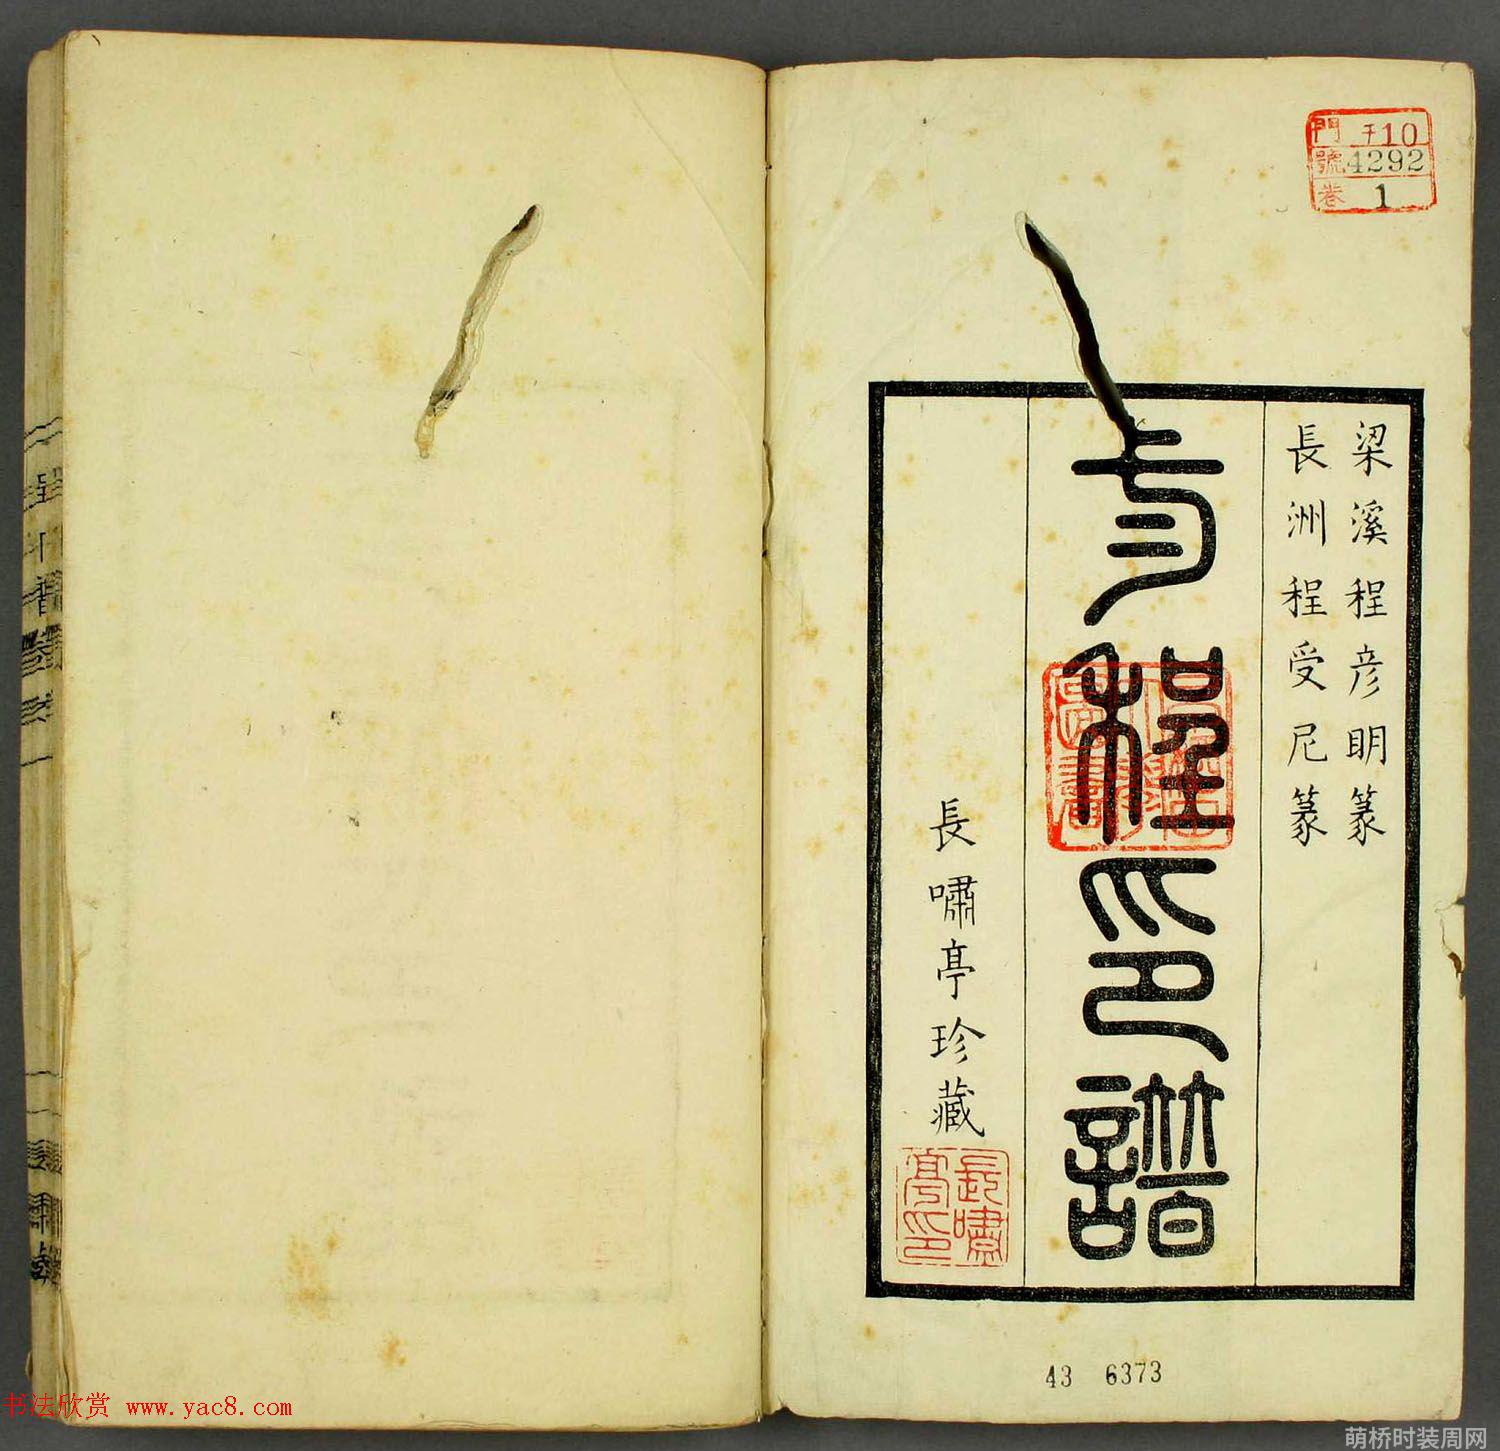 門 チ10
號 4292
卷 1
梁溪程彦明篆
長洲程受尼篆
程印譜
長嘯亭珍藏
長嘯亭印
43 6373
书法欣赏 www.yac8.com
萌桥时装周网